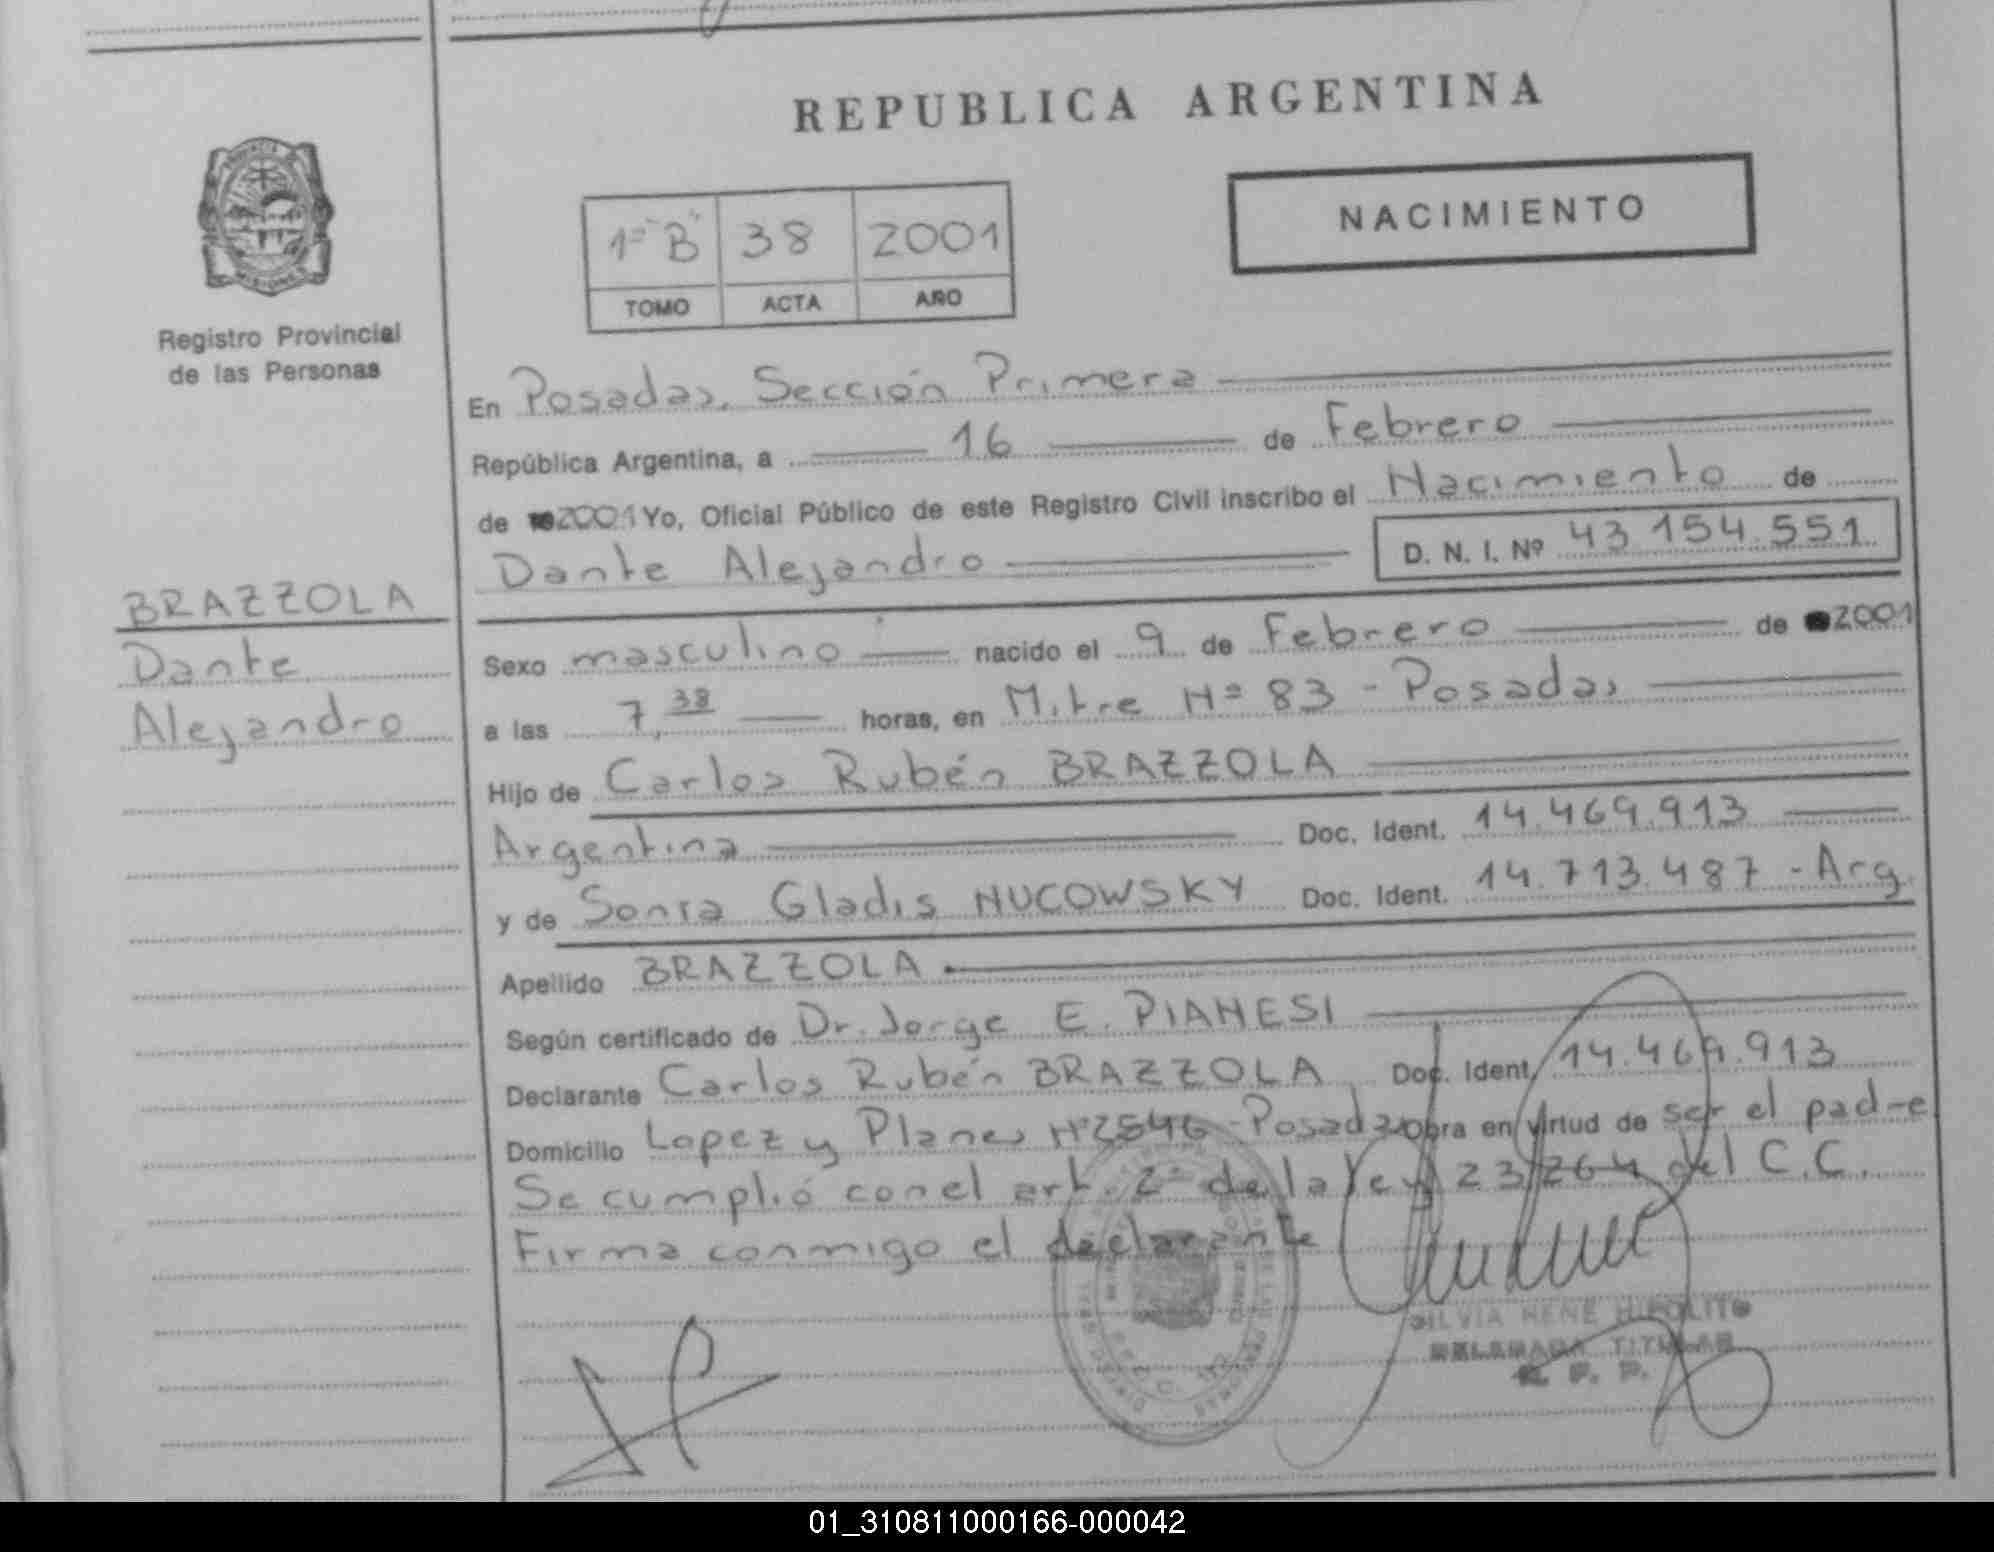 REPUBLICA ARGENTINA
NACIMIENTO
1º "B" 38 2001
TOMO ACTA AÑO
PROVINCIA
MISIONES
Registro Provincial
de las Personas
En Posadas, Sección Primera
República Argentina, a 16 de Febrero
de 2001 Yo, Oficial Público de este Registro Civil inscribo el Nacimiento de
Dante Alejandro D. N. I. Nº 43 154.551
BRAZZOLA
Dante
Alejandro
Sexo masculino nacido el 9 de Febrero de 2001
a las 7,38 horas, en Mitre Nº 83 - Posadas
Hijo de Carlos Rubén BRAZZOLA
Argentina Doc. Ident. 14.469.913
y de Sonia Gladis NUCOWSKY Doc. Ident. 14.713.487 - Arg.
Apellido BRAZZOLA
Según certificado de Dr. Jorge E. PIANESI
Declarante Carlos Rubén BRAZZOLA Doc. Ident. 14.469.913
Domicilio Lopez y Planes Nº 2546 - Posadas obra en virtud de ser el padre
Se cumplió con el art. 2º de la ley 23264 del C.C.
Firma conmigo el declarante
SILVIA RENE HIPOLITO
DELEGADA TITULAR
R. P. P.
01_310811000166-000042